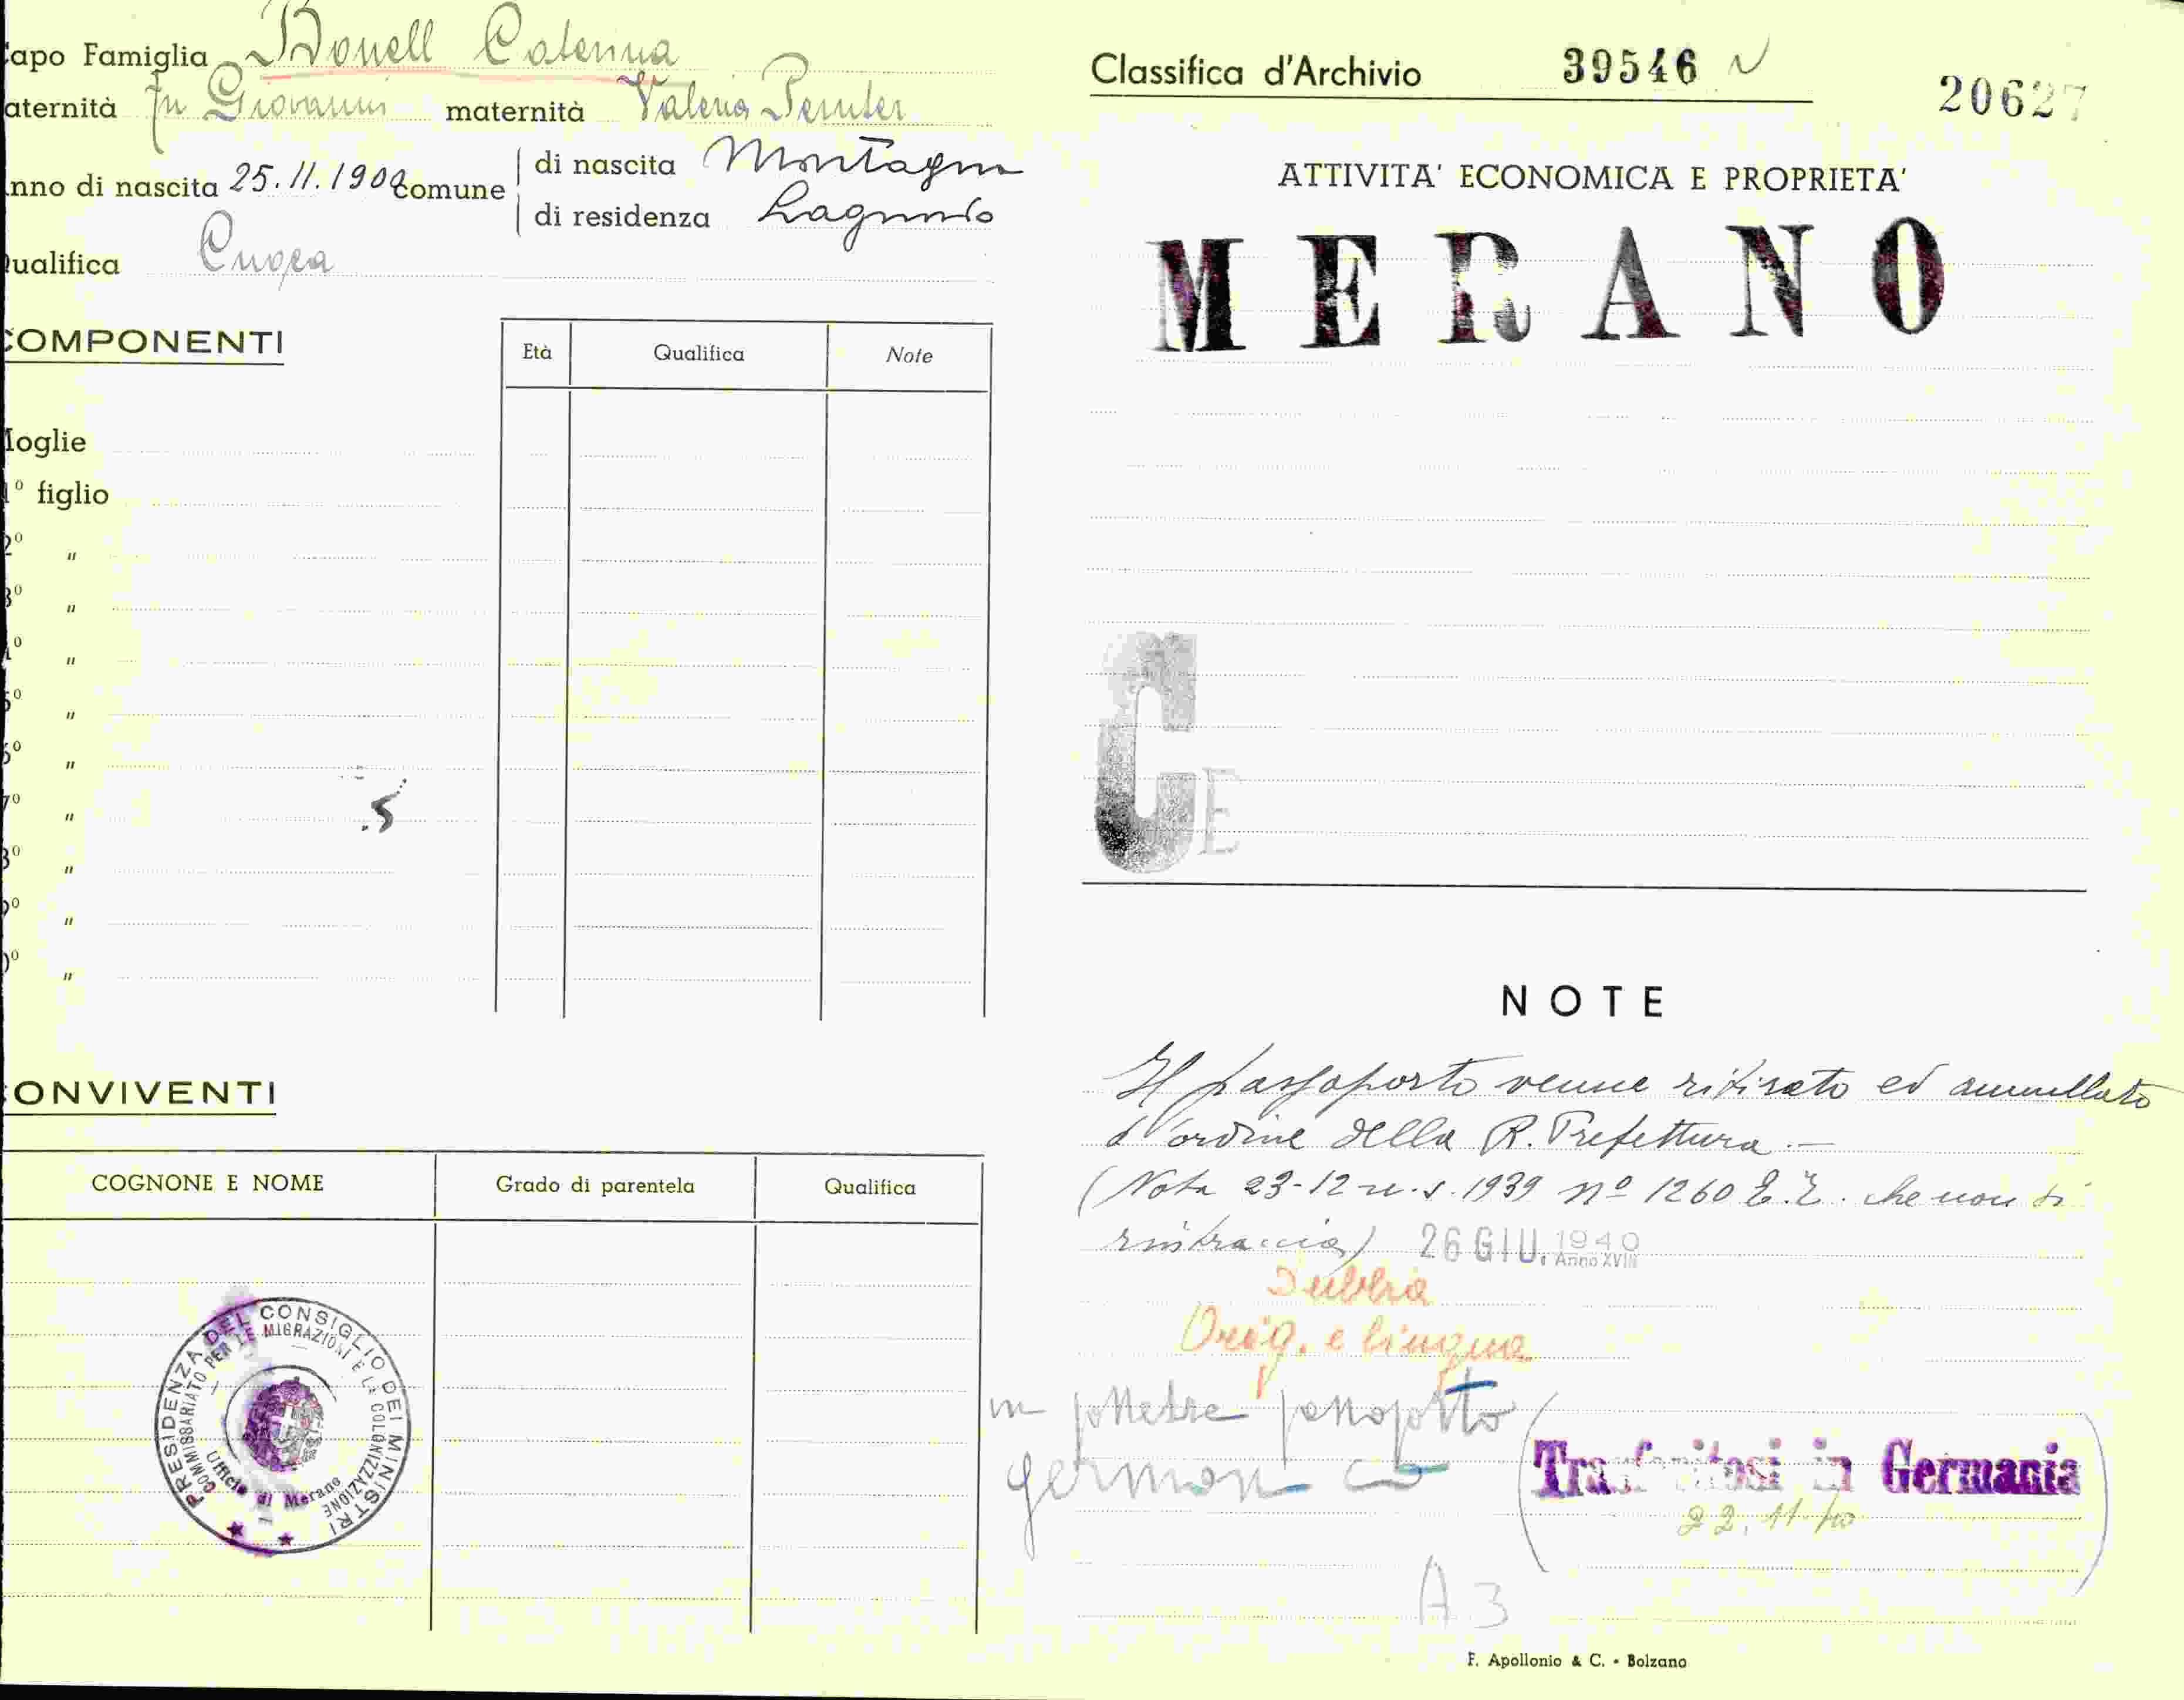 apo Famiglia Bonell Caterina
aternità fu Giovanni maternità Valeria Pernter
nno di nascita 25.11.1908 comune di nascita Montagna
di residenza Lagundo
ualifica Cuoca
COMPONENTI
Età Qualifica Note
Moglie
1º figlio
2º "
3º "
4º "
5º "
6º "
7º "
8º "
9º "
0º "
CONVIVENTI
COGNONE E NOME Grado di parentela Qualifica
PRESIDENZA DEL CONSIGLIO DEI MINISTRI
COMMISSARIATO PER LE MIGRAZIONI E LA COLONIZZAZIONE
Ufficio di Merano
Classifica d'Archivio 39546
20627
ATTIVITA' ECONOMICA E PROPRIETA'
MERANO
C E
NOTE
Il passaporto venne ritirato ed annullato
d'ordine della R. Prefettura.—
(Nota 23-12 u.s. 1939 nº 1260 E.E. che non si
rintraccia) 26 GIU. 1940 Anno XVIII
Dubbia
Orig. e lingua
in potere passaporto
germanico
Trasferitosi in Germania
22.11/40
A 3
F. Apollonio & C. - Bolzano